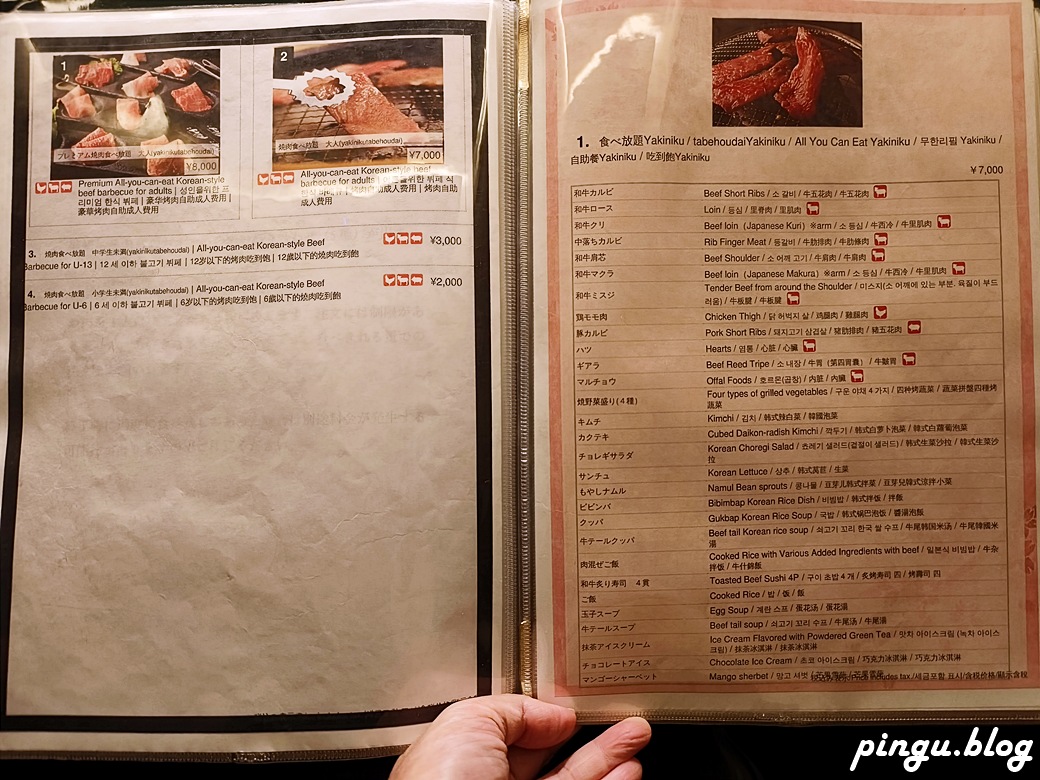 1
プレミアム焼肉食べ放題 大人(yakinikutabehoudai)
¥8,000
Premium All-you-can-eat Korean-style
beef barbecue for adults | 성인을위한 프
리미엄 한식 뷔페 | 豪华烤肉自助成人费用 |
豪華烤肉自助成人費用
2
焼肉食べ放題 大人(yakinikutabehoudai)
¥7,000
All-you-can-eat Korean-style beef
barbecue for adults |
뷔페 | 烤肉自助成人费用 | 烤肉自助
成人費用
3. 燒肉食べ放題 中学生未満(yakinikutabehoudai) | All-you-can-eat Korean-style Beef
Barbecue for U-13 | 12 세 이하 불고기 뷔페 | 12岁以下的烤肉吃到饱 | 12歲以下的燒肉吃到飽
¥3,000
4. 燒肉食べ放題 小学生未満(yakinikutabehoudai) | All-you-can-eat Korean-style Beef
Barbecue for U-6 | 6 세 이하 불고기 뷔페 | 6岁以下的烤肉吃到饱 | 6歲以下的燒肉吃到飽
¥2,000
1. 食べ放題Yakiniku / tabehoudaiYakiniku / All You Can Eat Yakiniku / 무한리필 Yakiniku /
自助餐Yakiniku / 吃到飽Yakiniku
¥7,000
和牛カルビ Beef Short Ribs / 소 갈비 / 牛五花肉 / 牛五花肉
和牛ロース Loin / 등심 / 里脊肉 / 里肌肉
和牛クリ Beef loin (Japanese Kuri) ※arm / 소 등심 / 牛西冷 / 牛里肌肉
中落ちカルビ Rib Finger Meat / 등갈비 / 牛肋排肉 / 牛肋條肉
和牛肩芯 Beef Shoulder / 소 어깨 고기 / 牛肩肉 / 牛肩肉
和牛マクラ Beef loin (Japanese Makura) ※arm / 소 등심 / 牛西冷 / 牛里肌肉
和牛ミスジ Tender Beef from around the Shoulder / 미스지(소 어깨에 있는 부분. 육질이 부드
러움) / 牛板腱 / 牛板腱
鶏モモ肉 Chicken Thigh / 닭 허벅지 살 / 鸡腿肉 / 雞腿肉
豚カルビ Pork Short Ribs / 돼지고기 삼겹살 / 猪肋排肉 / 豬五花肉
ハツ Hearts / 염통 / 心脏 / 心臟
ギアラ Beef Reed Tripe / 소 내장 / 牛胃(第四胃囊) / 牛皺胃
マルチョウ Offal Foods / 호르몬(곱창) / 内脏 / 內臟
焼野菜盛り(4種) Four types of grilled vegetables / 구운 야채 4 가지 / 四种烤蔬菜 / 蔬菜拼盤四種烤
蔬菜
キムチ Kimchi / 김치 / 韩式辣白菜 / 韓國泡菜
カクテキ Cubed Daikon-radish Kimchi / 깍두기 / 韩式白萝卜泡菜 / 韓式白蘿蔔泡菜
チョレギサラダ Korean Choregi Salad / 쵸레기 샐러드(겉절이 샐러드) / 韩式生菜沙拉 / 韓式生菜沙
拉
サンチュ Korean Lettuce / 상추 / 韩式莴苣 / 生菜
もやしナムル Namul Bean sprouts / 콩나물 / 豆芽儿韩式拌菜 / 豆芽兒韓式涼拌小菜
ビビンバ Bibimbap Korean Rice Dish / 비빔밥 / 韩式拌饭 / 拌飯
クッパ Gukbap Korean Rice Soup / 국밥 / 韩式锅巴泡饭 / 醬湯泡飯
牛テールクッパ Beef tail Korean rice soup / 쇠고기 꼬리 한국 쌀 수프 / 牛尾韩国米汤 / 牛尾韓國米
湯
肉混ぜご飯 Cooked Rice with Various Added Ingredients with beef / 일본식 비빔밥 / 牛杂
拌饭 / 牛什錦飯
和牛炙り寿司 4貫 Toasted Beef Sushi 4P / 구이 초밥 4 개 / 炙烤寿司 四 / 烤壽司 四
ご飯 Cooked Rice / 밥 / 饭 / 飯
玉子スープ Egg Soup / 계란 스프 / 蛋花汤 / 蛋花湯
牛テールスープ Beef tail soup / 쇠고기 꼬리 수프 / 牛尾汤 / 牛尾湯
抹茶アイスクリーム Ice Cream Flavored with Powdered Green Tea / 맛차 아이스크림 (녹차 아이스
크림) / 抹茶冰淇淋 / 抹茶冰淇淋
チョコレートアイス Chocolate Ice Cream / 초코 아이스크림 / 巧克力冰淇淋 / 巧克力冰淇淋
マンゴーシャーベット Mango sherbet / 망고 셔벗 /
includes tax / 세금포함 표시/含税价格/顯示含稅
pingu.blog